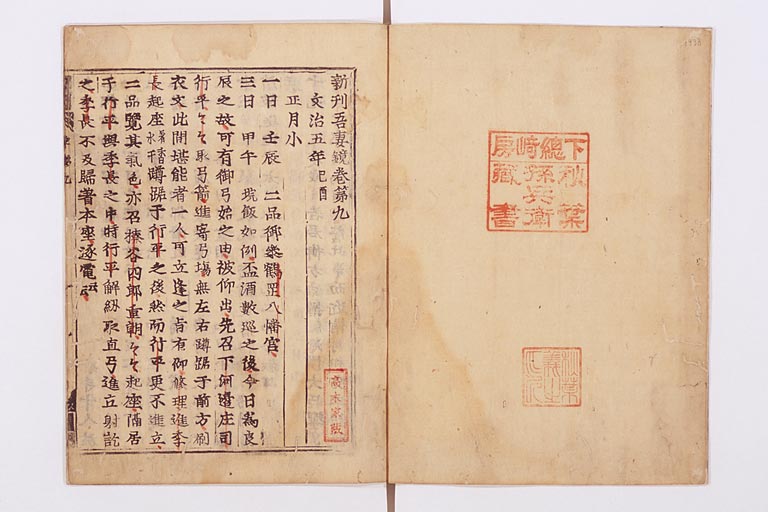 新刊吾妻鏡卷第九
文治五年己酉
正月小
一日　壬辰　二品御參鶴罡八幡宮
三日　甲午　垸飯如例盃酒數巡之後今日爲良
辰之故可有御弓始之由被仰出先召下河邊庄司
行平々々取弓箭進寄弓塲無左右蹲踞于前方刷
衣文此間堪能者一人可立逢之旨有仰修理進季
長起座水干葛袴蹲踞于行平之後然而行平更不進立
二品覽其氣色亦召榛谷四郎重朝々々起座隔居
于行平與季長之中時行平解紐取直弓進立射訖
之季長不及歸著本座逐電云々
高木家藏
下秋葉
總崎孫兵衛
房藏書
秋葉
義之